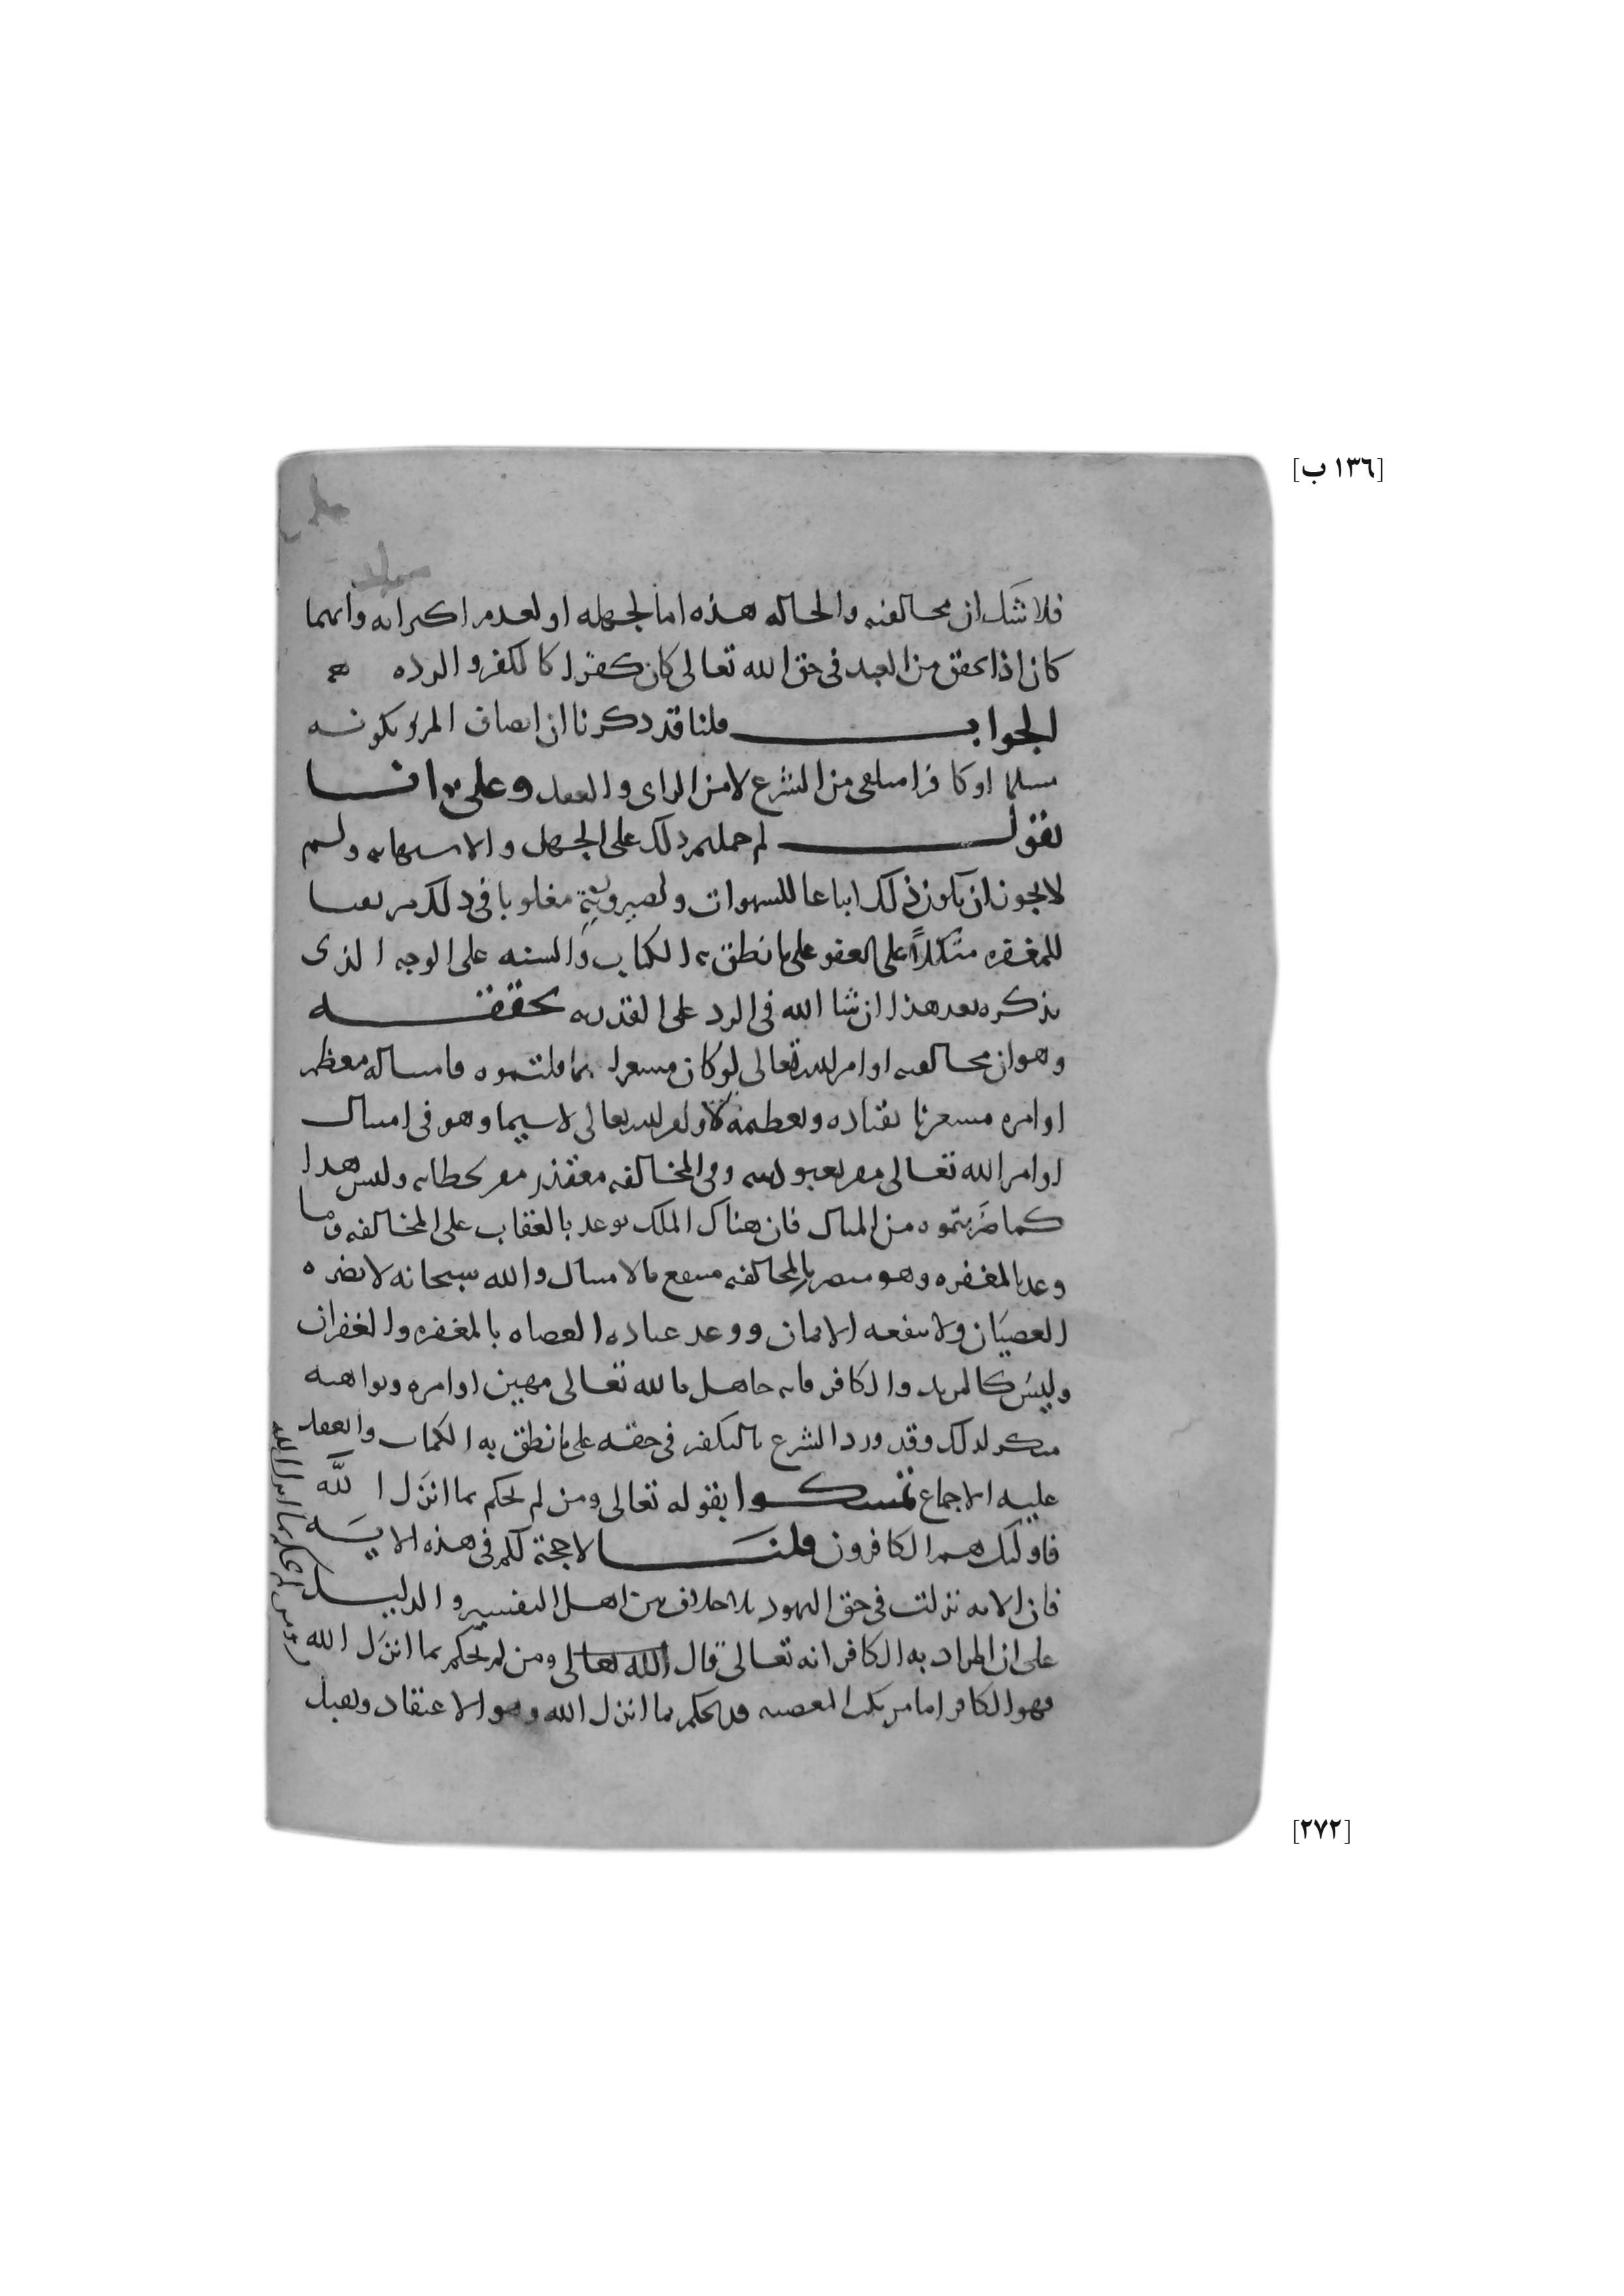 [١٣٦ ب]
فلا شك ان مخالفته والحاله هذه اما لجهله او لعدم اكتراثه وايهما
كان اذا تحقق من العبد في حق الله تعالى كان كفرا كالكفر والرده
الجواب قلنا قد ذكرنا ان اتصاف المرء بكونه
مسلما او كافرا متلقى من الشرع لا من الراى والعقل وعلى انا
نقول لم حملتم ذلك على الجهل والاستهانه ولم
لا يجوز ان يكون ذلك اتباعا للشهوات ولصيرورته مغلوبا في ذلك مرتقبا
للمغفره متكلا على العفو على ما نطق به الكتاب والسنه على الوجه الذى
نذكره بعد هذا ان شا الله في الرد على القدريه تحققه
وهو ان مخالفه اوامر الله تعالى لو كان مشعرا بما قلتموه فامتثاله معظم
اوامره مشعر بانقياده وتعظيمه لاوامر الله تعالى لا سيما وهو في امتثال
اوامر الله تعالى مقر بعبوديته وفي المخالفه معتذر مقر بخطائه وليس هذا
كما ضربتموه من المثال فان هناك الملك توعد بالعقاب على المخالفه وما
وعد بالمغفره وهو متضرر بالمخالفه منتفع بالامتثال والله سبحانه لا يضره
العصيان ولا ينفعه الايمان ووعد عباده العصاه بالمغفره والغفران
وليس كالمرتد والكافر فانه جاهل بالله تعالى مهين اوامره ونواهيه
منكر لذلك وقد ورد الشرع بالتكفير في حقه على ما نطق به الكتاب وانعقد
عليه الاجماع تمسكوا بقوله تعالى ومن لم يحكم بما انزل الله
فاوليك هم الكافرون قلنا لا حجة لكم في هذه الايه
فان الايه نزلت في حق اليهود بلا خلاف بين اهل التفسير والدليل
على ان المراد به الكافر انه تعالى قال الله تعالى ومن لم يحكم بما انزل الله
فهو الكافر اما مرتكب المعصيه قد يحكم بما انزل الله وهو الاعتقاد وتقبل
ومن لم يحكم بما انزل الله
[٢٧٢]